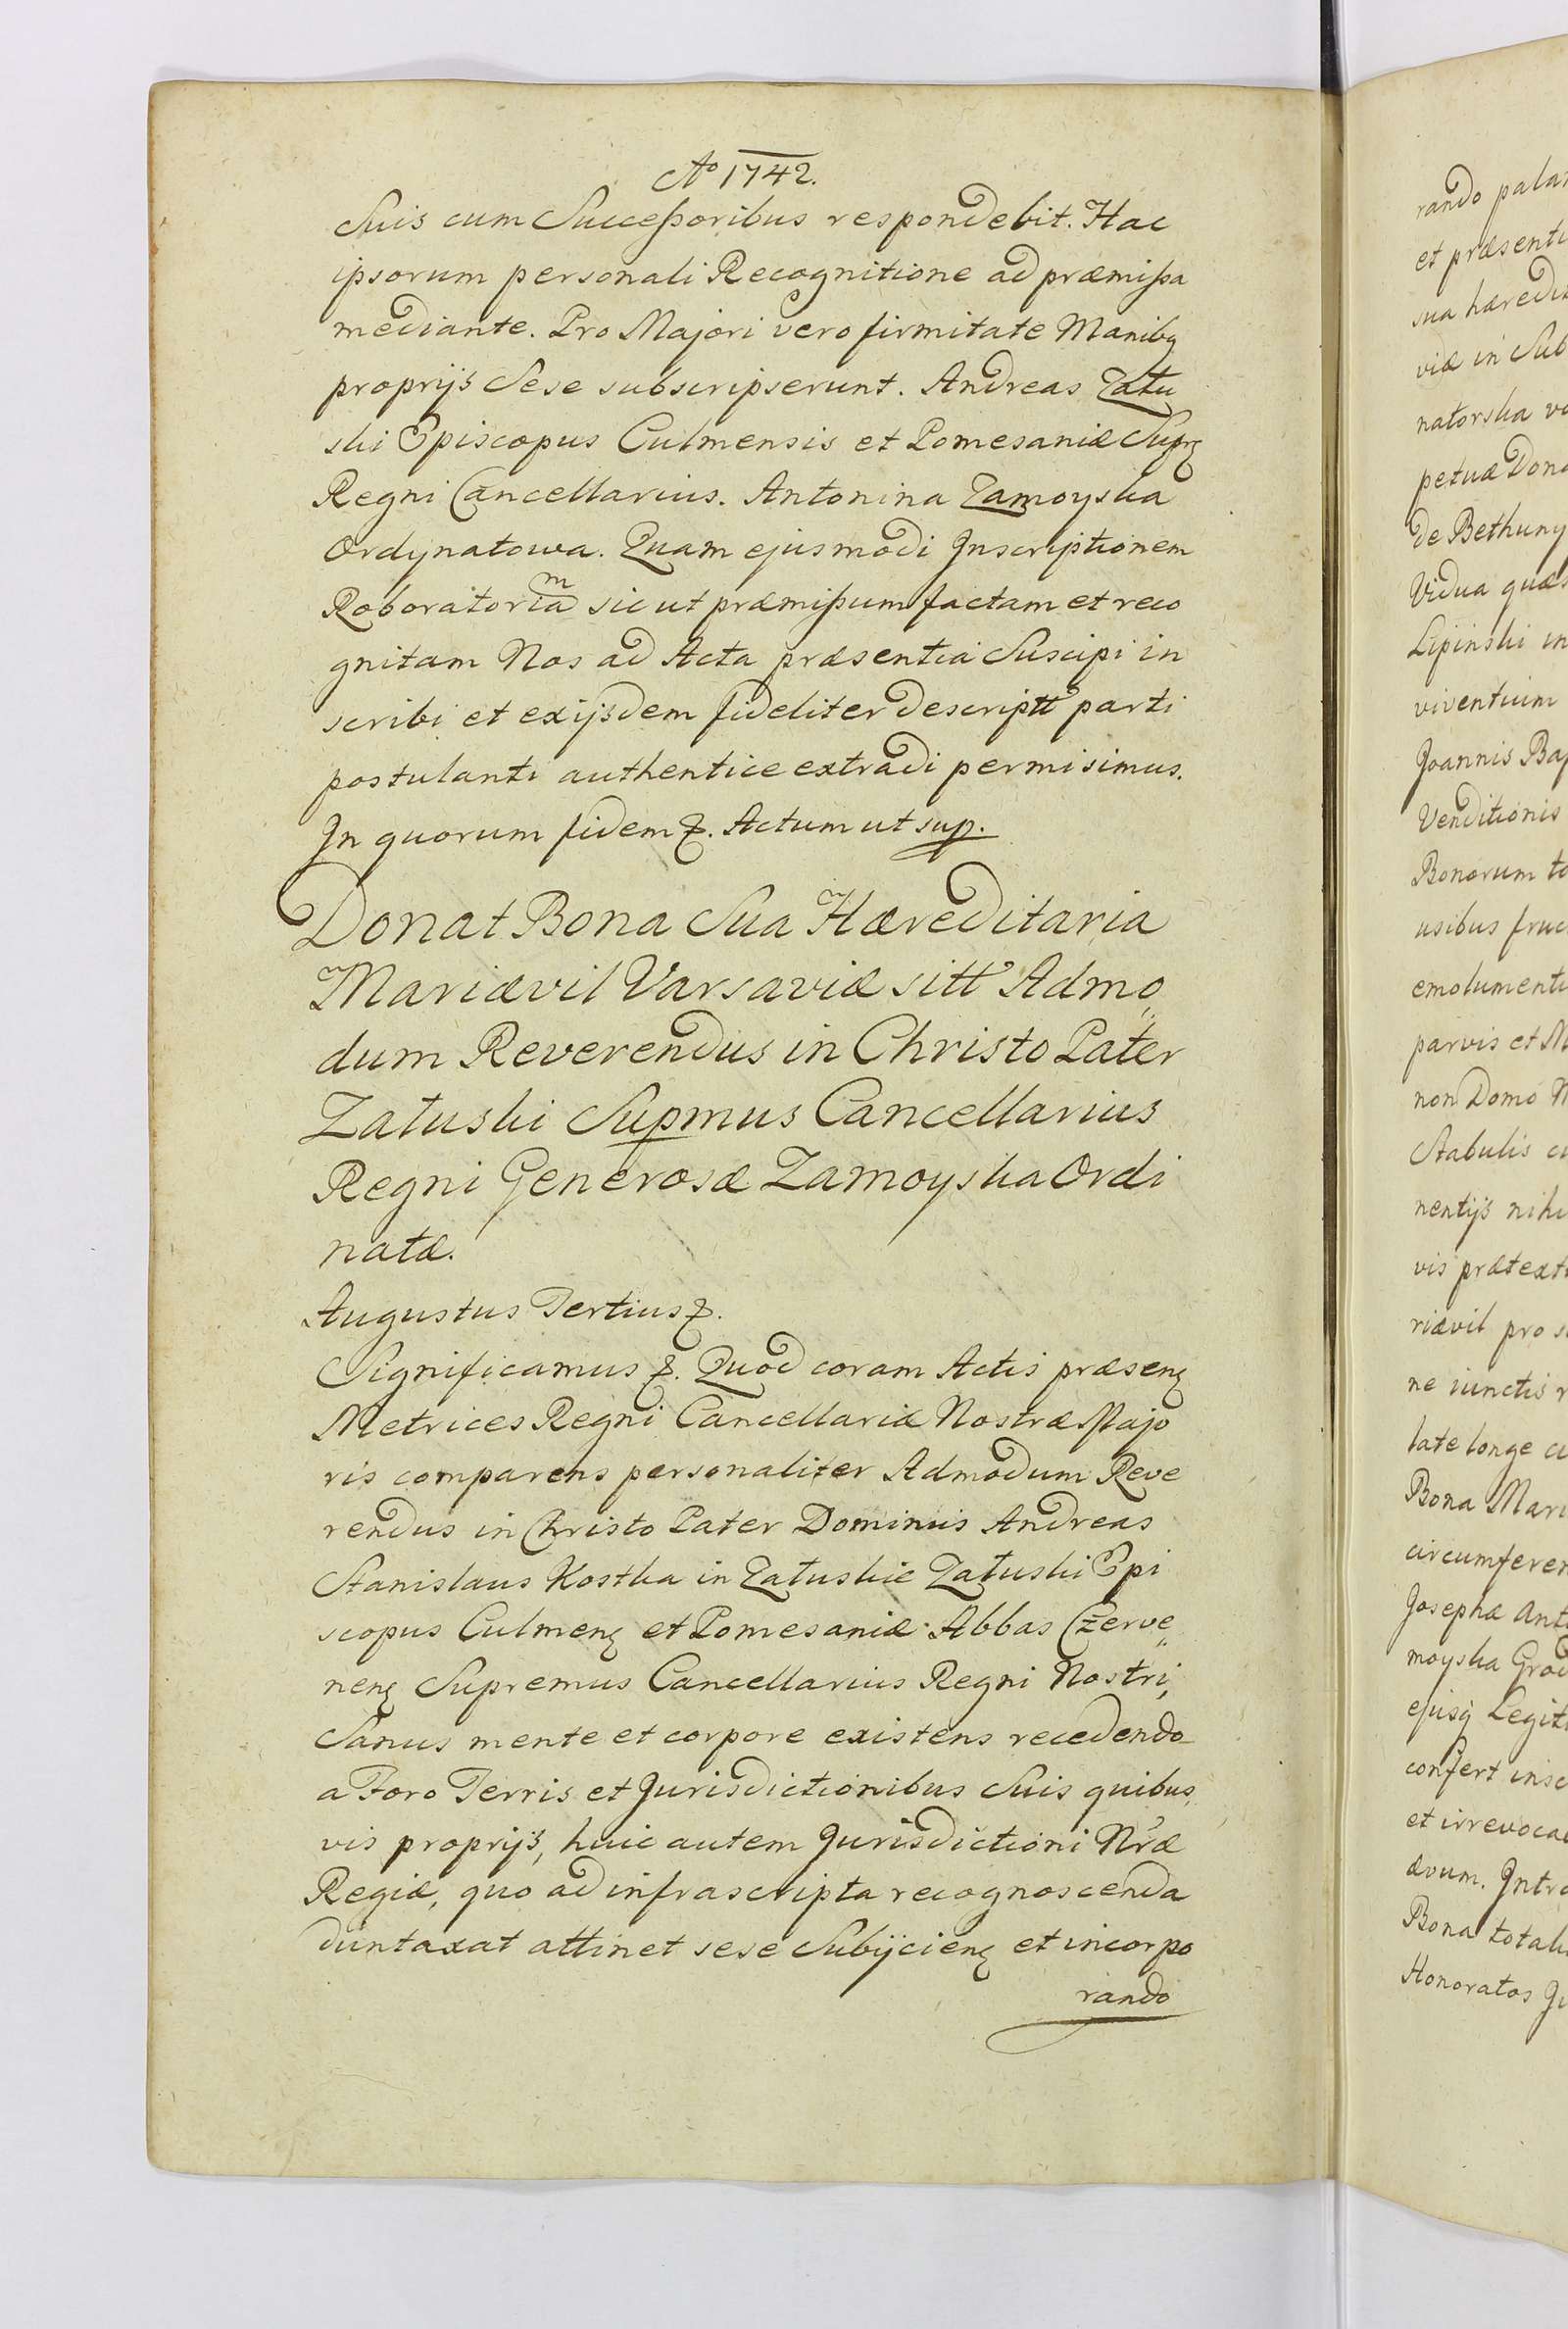 Aº 1742.
Suis cum Successoribus respondebit. Hac
ipsorum personali Recognitione ad præmissa
mediante. Pro Majori vero firmitate Manibq
proprijs Sese subscripserunt. Andreas Zału
ski Episcopus Culmensis et Pomesaniæ Supr
Regni Cancellarius. Antonina Zamoyska
Ordynatowa. Quam ejusmodi Inscriptionem
Roboratoriam sic ut præmissum factam et reco
gnitam Nos ad Acta præsentia Suscipi in
scribi et exijsdem fideliter descriptt parti
postulanti authentice extradi permisimus.
In quorum fidem &. Actum ut sup.
Donat Bona Sua Hæreditaria
Mariævil Varsaviæ sitt Admo„
dum Reverendus in Christo Pater
Załuski Supmus Cancellarius
Regni Generosæ Zamoyska Ordi
natæ.
Augustus Tertius &.
Significamus &. Quod coram Actis præsen
Metrices Regni Cancellariæ Nostræ Majo
ris comparens personaliter Admodum Reve
rendus in Christo Pater Dominus Andreas
Stanislaus Kostka in Załuskie Załuski Epi
scopus Culmen et Pomesaniæ Abbas Czerve„
nen Supremus Cancellarius Regni Nostri,
Sanus mente et corpore existens recedendo
a Foro Terris et Jurisdictionibus Suis quibus„
vis proprijs, huic autem Jurisdictioni Nræ
Regiæ, quo ad infrascripta recognoscenda
duntaxat attinet sese Subijcien et incorpo
rando
rando
et
sua
viæ in
natorska
petuæ
de Bethuny
Vidua
Lipinski
viventium
Joannis
Venditionis
Bonorum
usibus
parvis et
non Domo
Stabulis
nentijs
vis
riævil pro
ne iunctis
late longe
Bona
Josephæ
moyska
ejusq
confert
et
ævum.
Bona
Honoratos